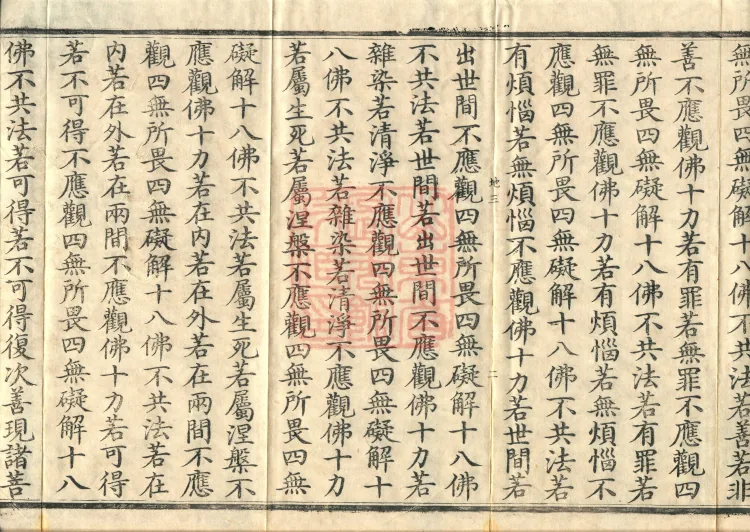 無所畏四無礙解十八佛不共法若善若非
善不應觀佛十力若有罪若無罪不應觀四
無所畏四無礙解十八佛不共法若有罪若
無罪不應觀佛十力若有煩惱若無煩惱不
應觀四無所畏四無礙解十八佛不共法若
有煩惱若無煩惱不應觀佛十力若世間若
地三 二
出世間不應觀四無所畏四無礙解十八佛
不共法若世間若出世間不應觀佛十力若
雜染若清淨不應觀四無所畏四無礙解十
八佛不共法若雜染若清淨不應觀佛十力
若屬生死若屬涅槃不應觀四無所畏四無
礙解十八佛不共法若屬生死若屬涅槃不
應觀佛十力若在內若在外若在兩間不應
觀四無所畏四無礙解十八佛不共法若在
內若在外若在兩間不應觀佛十力若可得
若不可得不應觀四無所畏四無礙解十八
佛不共法若可得若不可得復次善現諸菩